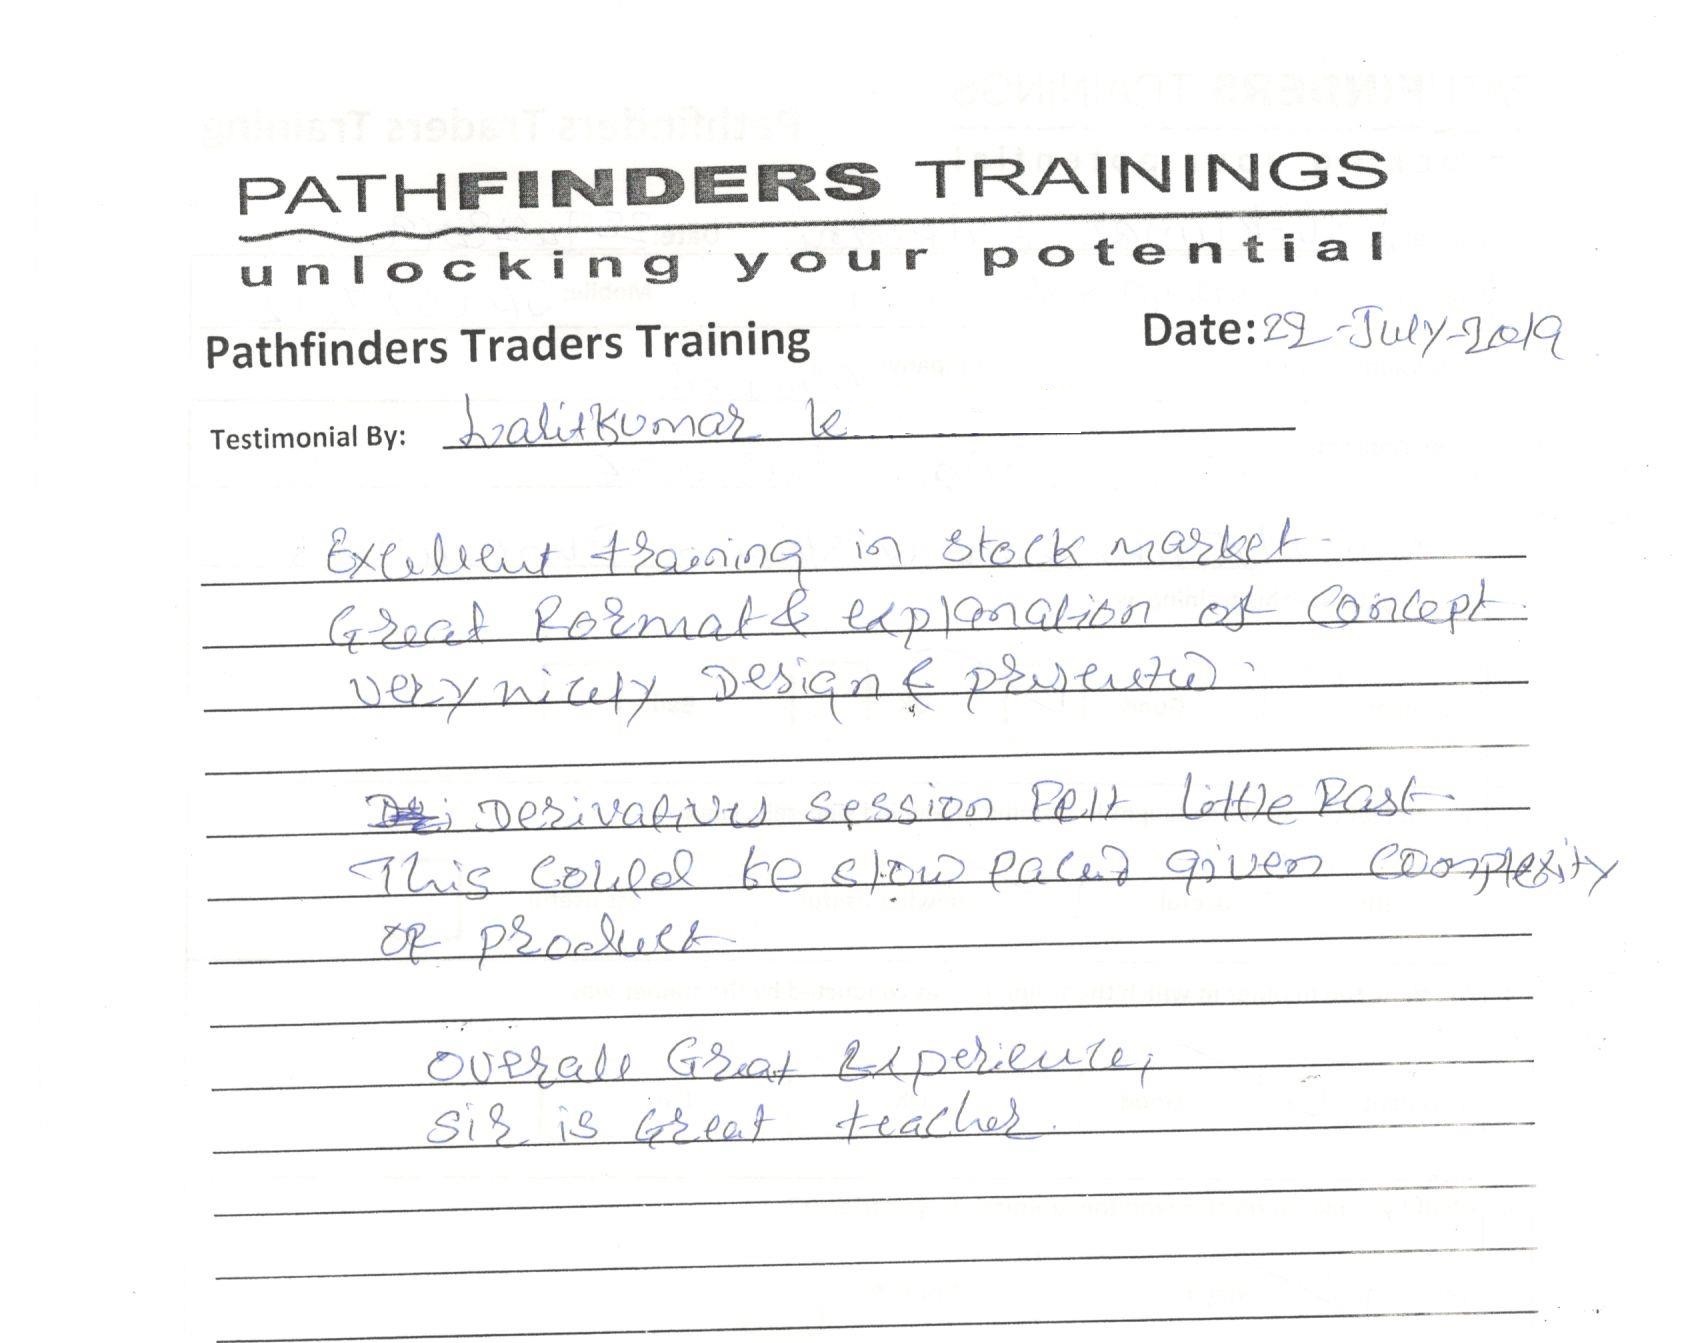 PATHFINDERS TRAININGS
unlocking your potential
Pathfinders Traders Training Date: 22-July-2019
Testimonial By: Lalitkumar K
Excellent training in stock market.
Great Format & explanation of concept.
very nicely Design & presented.
Derivatives session Felt Little Fast
This could be slow paced given complexity
of product
Overall Great Experience,
Sir is Great teacher.